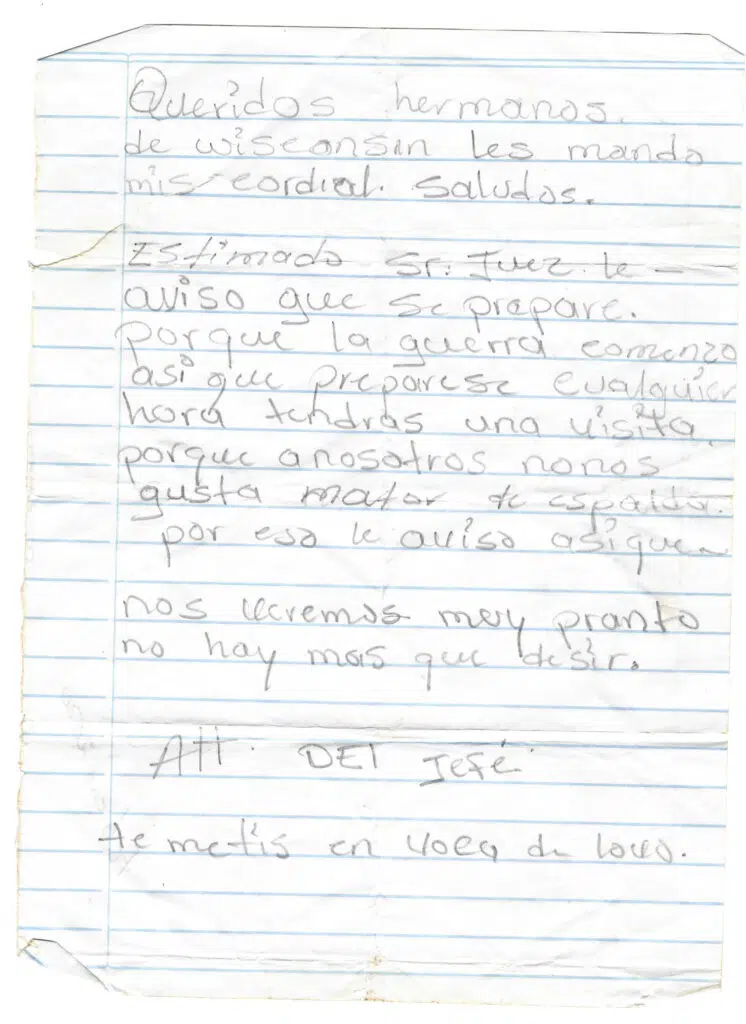 Queridos hermanos.
de wisconsin les mando
mis cordial. saludos.
Estimado Sr. Juez. le -
aviso que se prepare.
porque la guerra comenzo
asi que preparese cualquier
hora tendras una visita.
porque anosotros nonos
gusta matar de espalda.
por eso le aviso asique-
nos veremos muy pranto
no hay mas que desir.
Att. DEl Jefé.
te metis en voca de lovo.